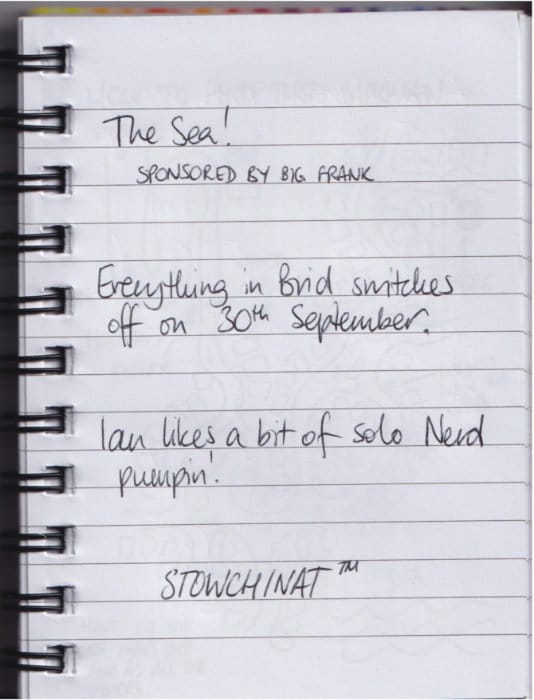 The Sea!
SPONSORED BY BIG FRANK
Everything in Brid switches
off on 30th September.
Ian likes a bit of solo Nerd
pumpin'.
STOWCHINAT™